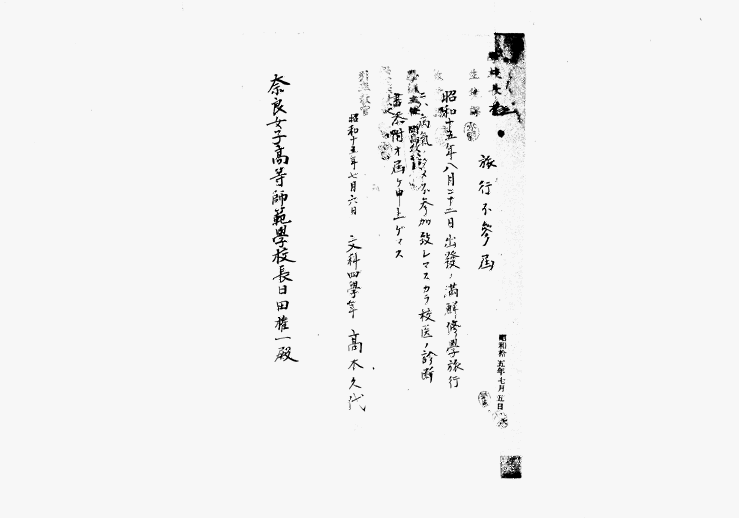 旅行不參届
昭和十五年八月二十二日出發ノ満鮮修學旅行
ニ、病氣ノタメ不參加致シマスカラ校医ノ診断
書添附オ届ケ申上ゲマス
昭和十五年七月六日 文科四學年 高木久代
奈良女子高等師範學校長日田権一殿
昭和拾五年七月五日